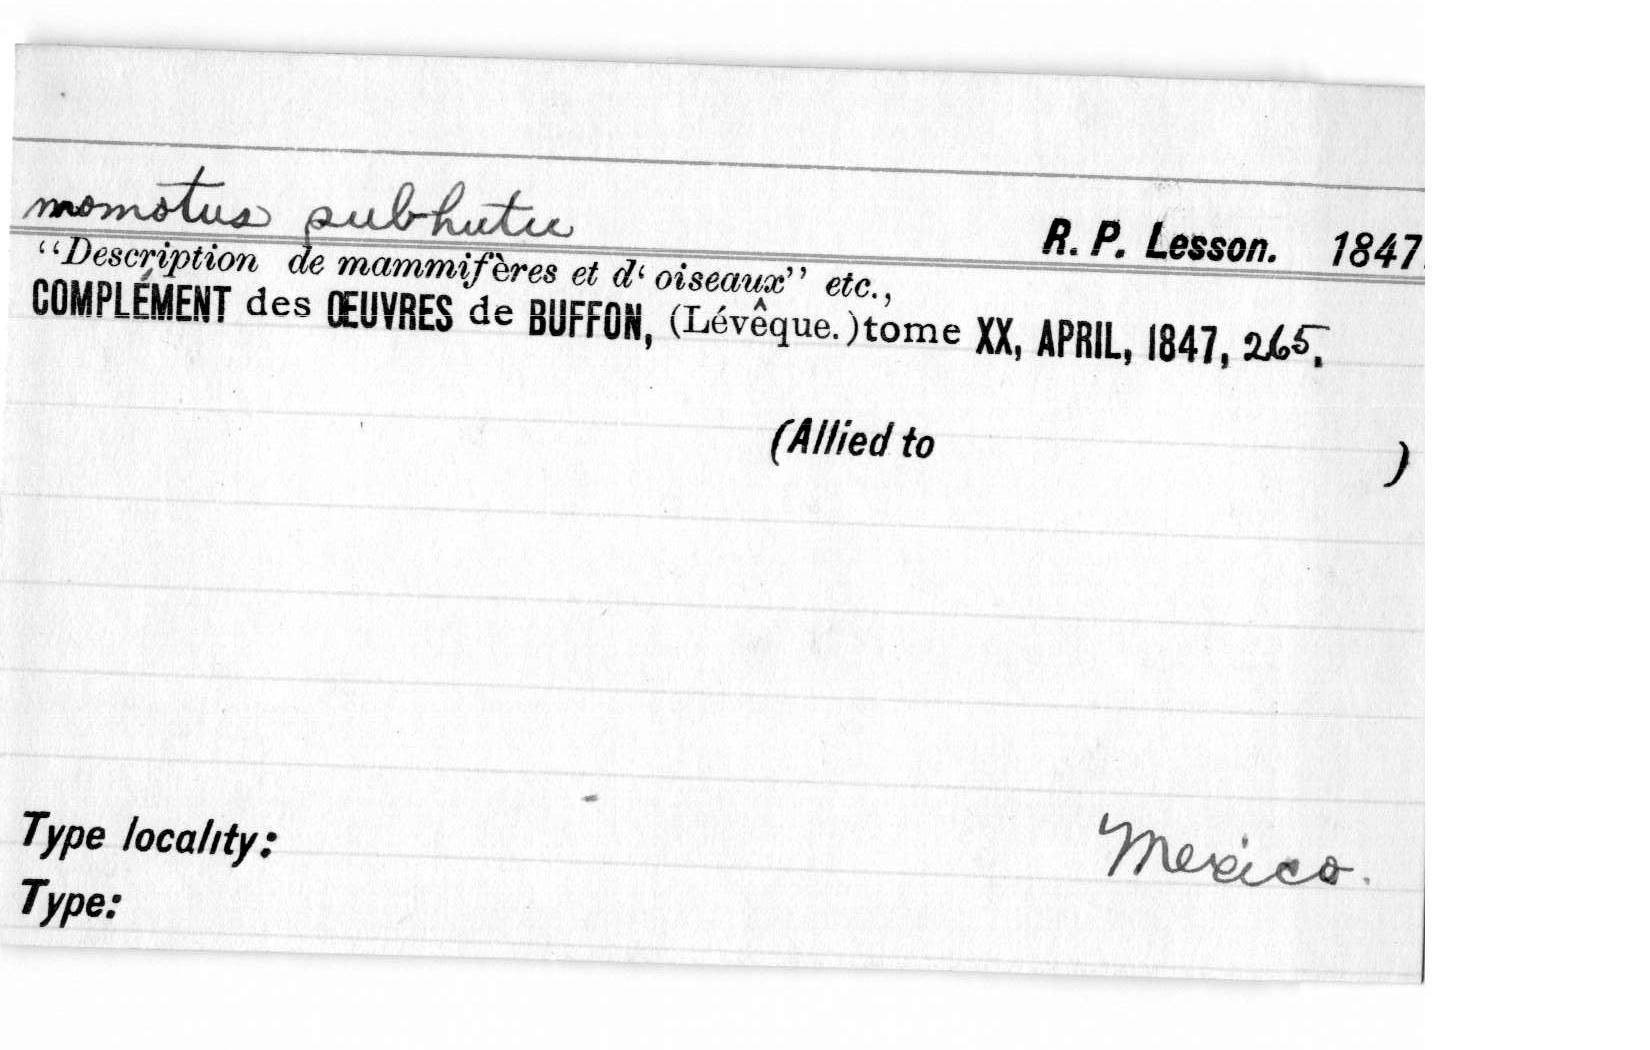 momotus subhutu R. P. Lesson. 1847.
“Description de mammifères et d‘ oiseaux” etc.,
COMPLÉMENT des ŒUVRES de BUFFON, (Lévêque.)tome XX, APRIL, 1847, 265.
(Allied to )
Type locality: Mexico.
Type: